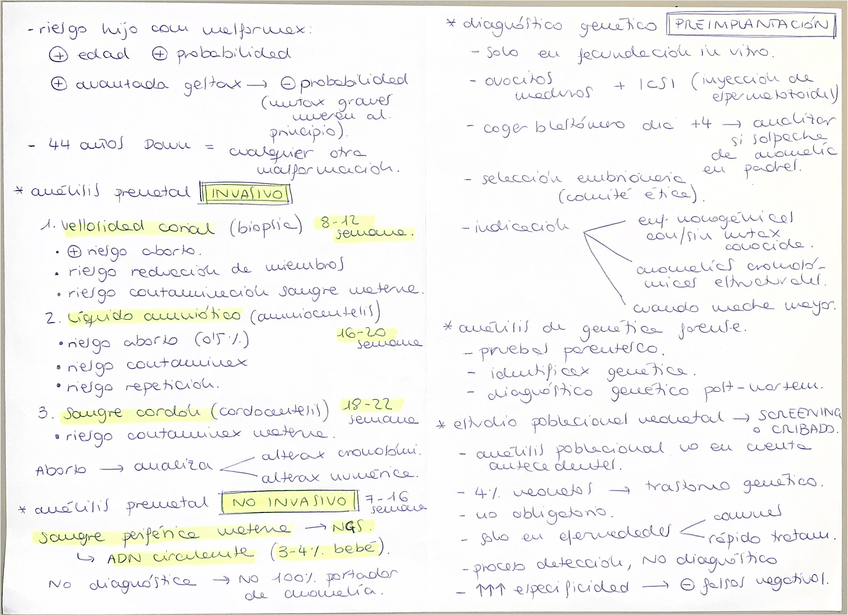 - riesgo hijo com malformax:
⊕ edad ⊕ probabilidad
⊕ avantada gestax → ⊖ probabilidad
(mutax graves
mueren al
principio).
- 44 años Down = cualquier otra
malformación.
* análisis prenatal INVASIVO
1. vellosidad corial (biopsia) 8-12
semana.
• ⊕ riesgo aborto.
• riesgo reducción de miembros
• riesgo contaminación sangre materna.
2. Líquido amniótico (amniocentesis)
16-20
semana
• riesgo aborto (0'5%)
• riesgo contaminax
• riesgo repetición.
3. Sangre cordón (cordocentesis) 18-22
semana
• riesgo contaminax materna.
Aborto → analiza
alterax cromosómi.
alterax numérica.
* análisis prenatal NO INVASIVO 7-16
semana
Sangre periférica materna → NGS.
↳ ADN circulante (3-4% bebé).
No diagnóstica → No 100% portador
de anomalía.
* diagnóstico genético PREIMPLANTACIÓN
- solo en fecundación in vitro.
- ovocitos
maduros + ICSI (inyección de
espermatozoides)
- coger blastómero día +4 → analizar
si sospecha
de anomalía
en padres.
- selección embrionaria
(comité ética).
- indicación
enf. monogénicas
con/sin mutax
conocida.
anomalías cromosó-
micas estructurales.
cuando madre mayor.
* análisis de genética forense.
- pruebas parentesco.
- identificax genética.
- diagnóstico genético post-mortem.
* estudio poblacional neonatal → SCREENING
o CRIBADO.
- análisis poblacional no en cuenta
antecedentes.
- 4% neonatos → trastorno genético.
- no obligatorio.
- solo en efermedades
comunes
rápido tratam.
- proceso detección, NO diagnóstico
- ↑↑↑ especificidad → ⊖ falsos negativos.